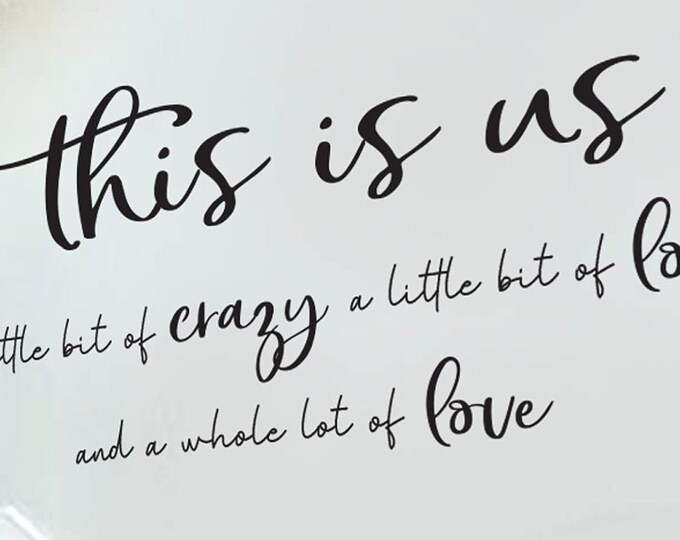 this is us
bit of crazy a little bit of
and a whole lot of love